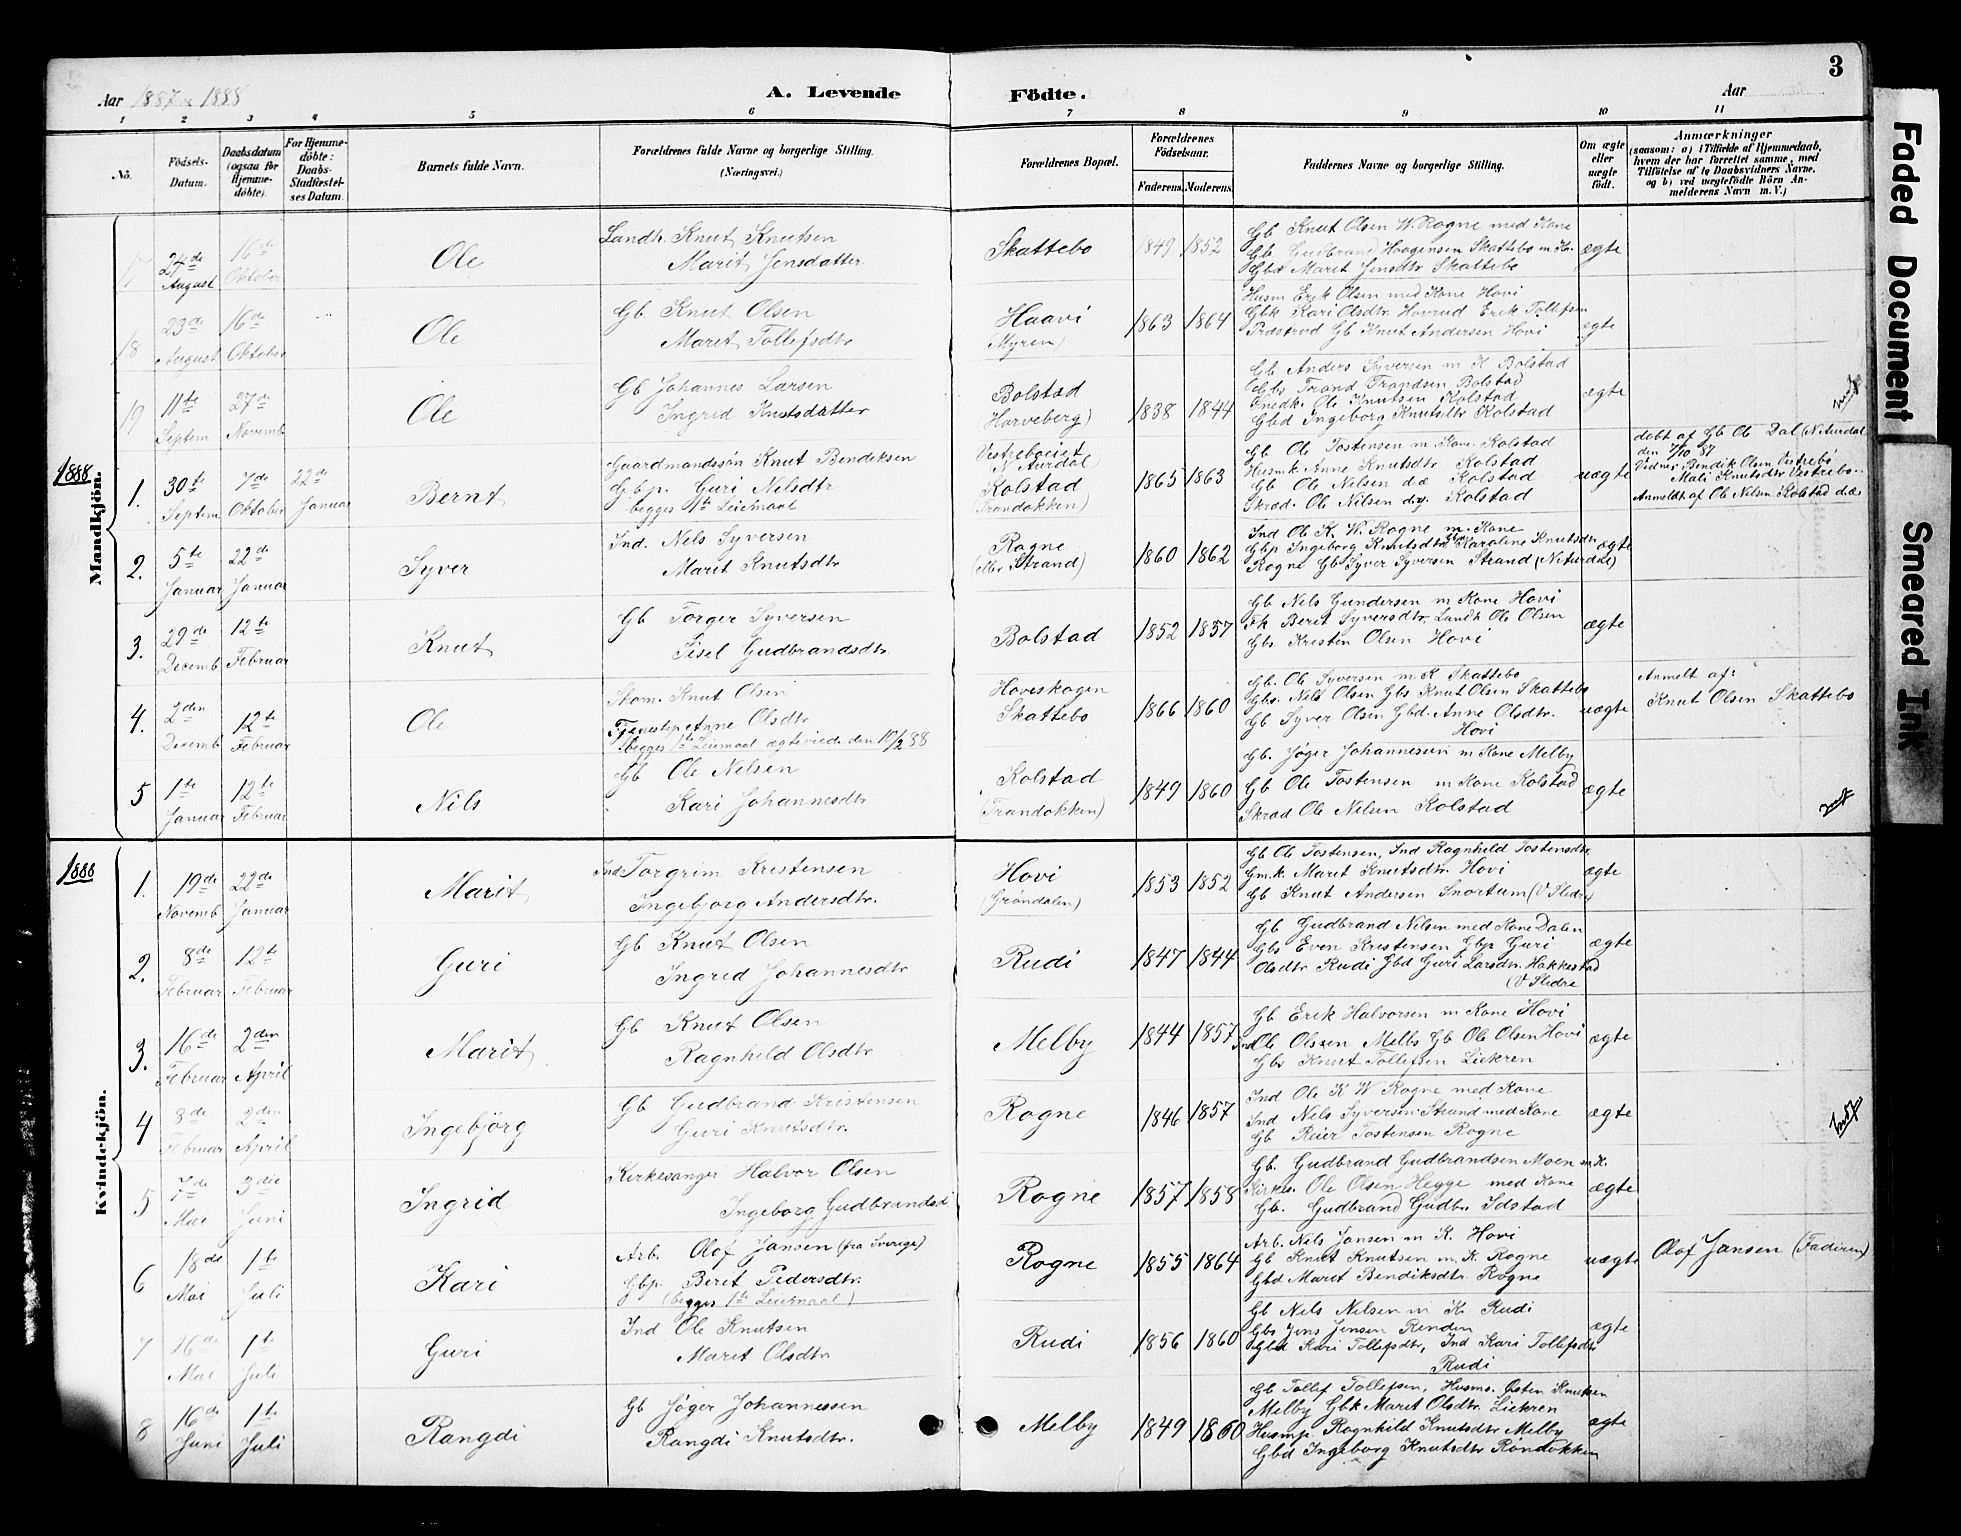 3
Aar 1887 og 1888
A. Levende Födte.
Aar
1 2 3 4 5 6 7 8 9 10 11
No.
Födsels-Datum.
Daabsdatum (ogsaa for Hjemme-döbte).
For Hjemme-döbte: Daabs-Stadfæstel-ses Datum.
Barnets fulde Navn.
Forældrenes fulde Navne og borgerlige Stilling. (Næringsvei.)
Forældrenes Bopæl.
Forældrenes Födselsaar.
Faderens. Moderens.
Faddernes Navne og borgerlige Stilling.
Om ægte eller uægte født.
Anmærkninger
(saasom: a) i Tilfælde af Hjemmedaab, hvem der har forrettet samme, med Tilføielse af to Daabsvidners Navne, og b) ved uægtefödte Börn An-melderens Navn m. V.)
Mandkjön.
17 24de August 16de Oktober Ole
Landh. Knut Knutsen
Marit Jensdatter
Skattebo 1849 1852
Gb Knut Olsen W. Rogne med Kone
Gb Gudbrand Haagensen Skattebo m Ko.
Gbd Marit Jensdtr Skattebo
ægte
18 23de August 16de Oktober Ole
Gb. Knut Olsen
Marit Tollefsdtr
Haavi
Myren)
1863 1864
Husm Erik Olsen med Kone Hovi
Gbk Kari Olsdtr. Hovrud Erik Tollefsen
Præstrud Gb Knut Andersen Hovi
ægte
19 11te Septem 27de Novemb Ole
Gb Johannes Larsen
Ingrid Knutsdatter
Bolstad
Horveberg)
1838 1844
Gb Anders Syversen m K Bolstad
Gbs Trond Trandsen Bolstad
Snedk. Ole Knutsen Kolstad
Gbd Ingeborg Knutsdtr Kolstad
ægte
1888
1. 30te Septem 7de Oktober 22de Januar Bernt
Gaardmandssön Knut Bendiksen
Gbp. Guri Nilsdtr
begges 1te Leiemaal
N Aurdal)
Kolstad
(Trandokken)
1865 1863
Gb Ole Tostensen m. Kone. Kolstad
Husmk Anne Knutsdtr Kolstad
Gb Ole Nelsen d.æ Kolstad
Skræd. Ole Nilsen d.y. Kolstad
uægte
døbt af Gb Ole Dal (N Aurdal
den 7/10 87
Vidner Bendik Olsen Vestrebø
Mali Knutsdtr Vestrebø
Anmeldt af Ole Nelsen Kolstad d.æ
2. 5te Januar 22de Januar Syver
Ind. Nels Syversen
Marit Knutsdtr
Rogne
Strand)
1860 1862
Ind Ole K. W. Rogne m. Kone
Gbp Ingeborg Knutsdtr Karoline Knutsdtr
Rogne Gb Syver Syversen Strand (N Aurdal)
ægte
3. 29de Decemb 12te Februar Knut
Gb Torger Syversen
Sisel Gudbrandsdtr
Bolstad 1852 1857
Gb Nils Gundersen m Kone Hovi
Fk Berit Syversdtr. Landh Ole Olsen
Gbs. Kristen Olsen Hovi
ægte
4. 2den Decemb 12te Februar Ole
Skom. Knut Olsen
Tjenestep. Anne Olsdtr
begges 1te Leiemaal ægteviede den 10/2 88
Hoveskogen
Skattebo
1866 1860
Gb. Ole Syversen m. K Skattebo
Gbs. Nils Olsen Gbs Knut Olsen Skattebo
Gb Syver Olsen Gbd. Anne Olsdtr.
Hovi
uægte
Anmelt af:
Knut Olsen Skattebo
5 1te Januar 12te Februar Nils
Gb Ole Nelsen
Kari Johannesdtr
Kolstad
(Trandokken)
1849 1860
Gb. Jøger Johannesen m Kone Melby
Gb Ole Tostensen m Kone Kolstad
Skræd Ole Nilsen Kolstad
ægte
Kvindekjön.
1888
1. 19de Novemb 22de Januar Marit
Ind Torgrim Kristensen
Ingebjorg Andersdtr.
Hovi
(Grøndalen)
1853 1852
Gb Ole Tostensen, Ind Ragnhild Tostensdtr
Gm.k. Marit Knutsdtr. Hovi
Gb Knut Andersen Snortum (V Slidre)
ægte
2. 8de Februar 12te Februar Guri
Gb Knut Olsen
Ingrid Johannesdtr
Rudi 1847 1844
Gb Gudbrand Nilsen med Kone Dalen
Gbs Even Kristensen Gbp Guri
Olsdtr Rudi Gbd Guri Larsdtr. Hakkestad
(V Slidre
ægte
3. 16de Februar 2den April Marit
Gb Knut Olsen
Ragnhild Olsdtr
Melby 1844 1857
Gb Erik Halvorsen m Kone Hovi
Ind Ole Olsen Melby Gb Ole Olsen Hovi
Gbs Knut Tollefsen Liekren
ægte
4 8de Februar 2den April Ingebjörg
Gb Gudbrand Kristensen
Guri Knutsdtr.
Rogne 1846 1857
Ind Ole K W Rogne med Kone
Ind Nels Syversen Strand med Kone
Gb Reier Tostensen Rogne
ægte
5 7de Mai 3die Juni Ingrid
Kirkesanger Halvor Olsen
Ingeborg Gudbrandsd
Rogne 1857 1858
Gb. Gudbrand Gudbrandsen Moen m K.
Kirkes. Ole Olsen Hegge med Kone
Gb. Gudbrand Gudbr. Idstad
ægte
6 18de Mai 1te Juli Kari
Arb. Olof Jansen (fra Sverige)
Gbp. Berit Pedersdtr.
(begges 1te Leiemaal)
Rogne 1855 1864
Arb. Nils Jansen m K. Hovi
Gb Knut Knutsen m. K. Rogne
Gbd Marit Bendiksdtr. Rogne
uægte
Olof Jansen (Faderen)
7 16de Mai 1te Juli Guri
Ind Ole Knutsen
Marit Olsdtr
Rudi 1856 1860
Gb Nils Nilsen m K. Rudi
Gbs Jens Jensen Renden
Gbd Kari Tollefsdtr, Ind Kari Tollefsdtr
Rudi
ægte
8 16de Juni 1te Juli Rangdi
Gb Jøger Johannessen
Rangdi Knutsdtr.
Melby 1849 1860
Gb Tollef Tollefsen, Husms. Østen Knutsen
Melby Gbk Marit Olsdtr. Liekren
Husmp. Ragnhild Knutsdtr Melby
Gbd Ingeborg Knutsdtr Rondokken
ægte
Faded Document
Smeared Ink